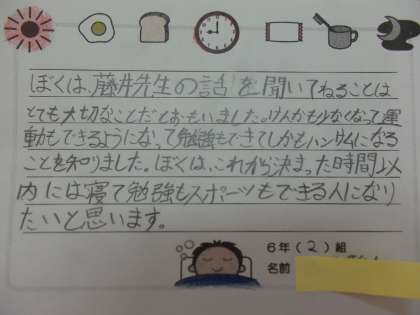 ぼくは、藤井先生の話を聞いてねることは
とても大切なことだとおもいました。けんかも少なくなって運
動もできるようになって勉強もできてしかもハンサムになる
ことを知りました。ぼくは、これから決まった時間以
内には寝て勉強もスポーツもできる人になり
たいと思います。
6年(2)組
名前